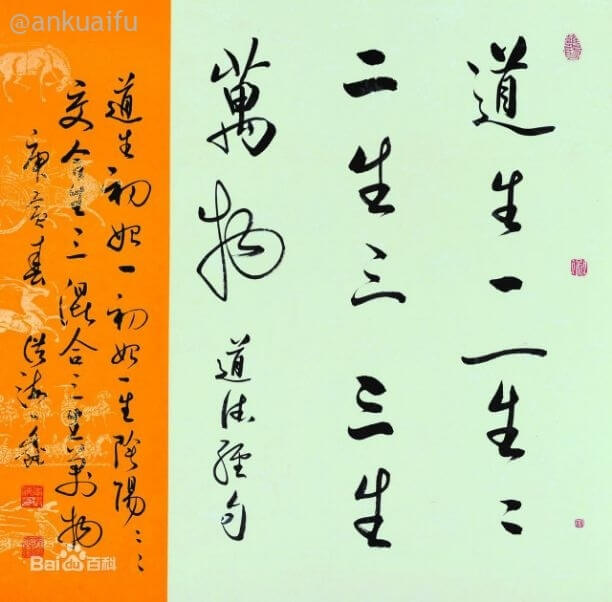 @ankuaifu
道生一一生二
二生三三生
萬物
道德經句
道生初始一初始一生陰陽二二
交合生三混合三生萬物
庚寅春浩海
Baidu百科